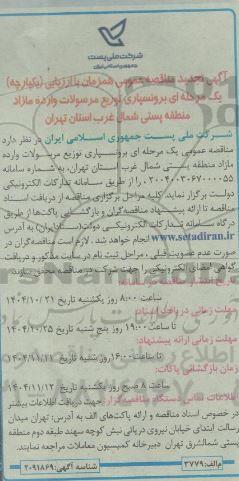 شرکت ملی پست
جمهوری اسلامی ایران
آگهی تجدید مناقصه عمومی همزمان با ارزیابی (یکپارچه)
یک مرحله ای برونسپاری توزیع مرسولات وارده مازاد
منطقه پستی شمال غرب استان تهران
شرکت ملی پست جمهوری اسلامی ایران در نظر دارد
مناقصه عمومی یک مرحله ای برونسپاری توزیع مرسولات وارده
مازاد منطقه پستی شمال غرب استان تهران، به شماره سامانه
۲۰۰۴۰۰۳۰۶۷۰۰۰۰۵۵ را از طریق سامانه تدارکات الکترونیکی
دولت برگزار نماید. کلیه مراحل برگزاری مناقصه از دریافت اسناد
مناقصه تا ارائه پیشنهاد مناقصه‌گران و بازگشایی پاکت‌ها از طریق
درگاه سامانه تدارکات الکترونیکی دولت (ستاد ایران) به آدرس
www.setadiran.ir انجام خواهد شد. لازم است مناقصه‌گران در
صورت عدم عضویت قبلی، مراحل ثبت نام در سایت مذکور و دریافت
گواهی امضای الکترونیکی را جهت شرکت در مناقصه محقق سازند.
تاریخ انتشار مناقصه در سامانه:
ساعت ۸:۰۰ روز یکشنبه تاریخ ۱۴۰۴/۱۰/۲۱
مهلت زمانی دریافت اسناد:
تا ساعت ۱۹:۰۰ روز پنج شنبه تاریخ ۱۴۰۴/۱۰/۲۵
مهلت زمانی ارائه پیشنهاد:
تا ساعت ۱۴:۰۰ روز شنبه تاریخ ۱۴۰۴/۱۱/۱۱
زمان بازگشائی پاکات:
ساعت ۸ صبح روز یکشنبه تاریخ ۱۴۰۴/۱۱/۱۲
اطلاعات تماس دستگاه مناقصه‌گزار: جهت دریافت اطلاعات بیشتر
در خصوص اسناد مناقصه و ارائه پاکت‌های الف به آدرس: تهران میدان
رسالت ابتدای خیابان نیروی دریائی نبش کوچه سهند طبقه دوم منطقه
پستی شمالشرق تهران دبیرخانه کمیسیون معاملات مراجعه نمایند.
م‌الف: ۳۷۷۹
شناسه آگهی: ۲۰۹۱۸۶۹